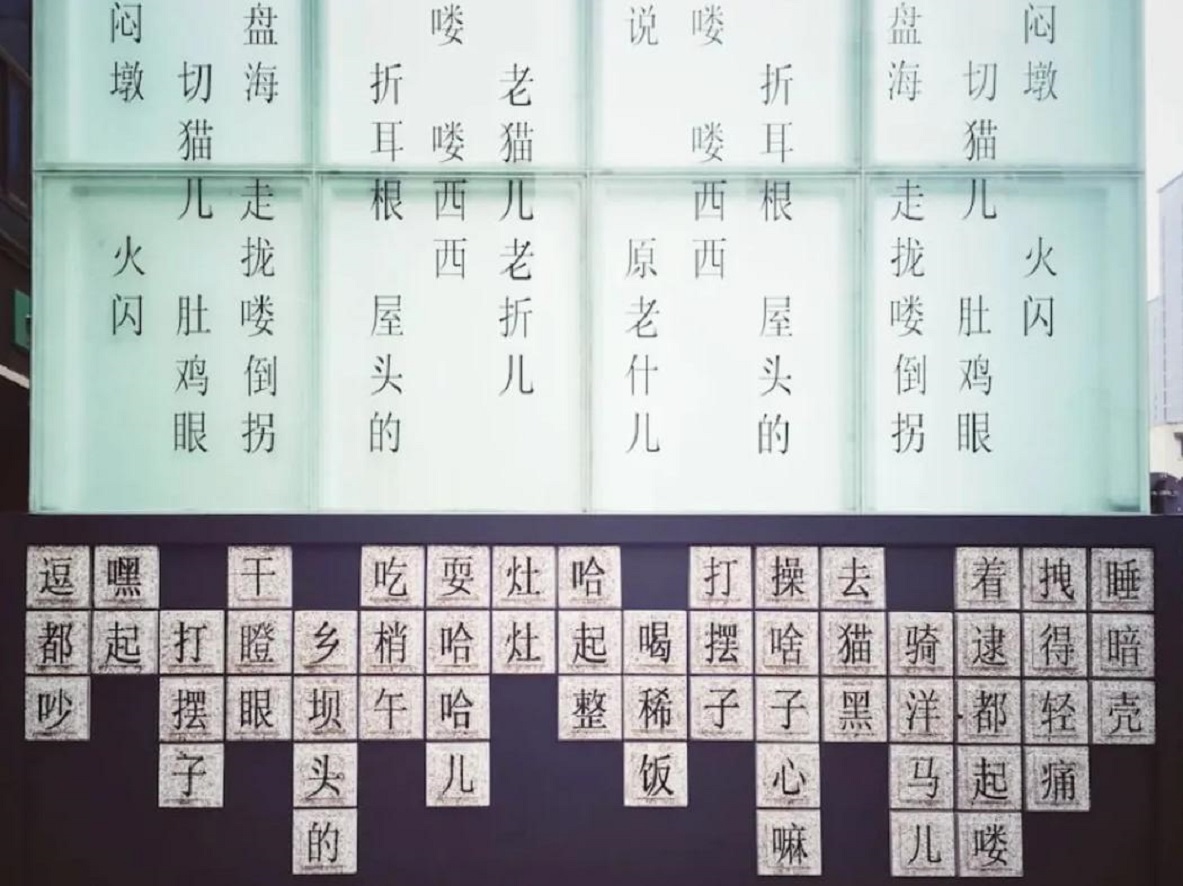 闷墩 火闪
切猫儿 肚鸡眼
盘海 走拢喽倒拐
折耳根 屋头的
喽 喽西西
老猫儿老折儿
说 原老什儿
喽 喽西西
折耳根 屋头的
盘海 走拢喽倒拐
切猫儿 肚鸡眼
闷墩 火闪
逗都吵
嘿起
打摆子
干瞪眼
乡坝头的
吃梢午
耍哈哈儿
灶灶
哈起整
喝稀饭
打摆子
操啥子心嘛
去猫黑
骑洋马儿
着逮都起喽
拽得轻痛
睡暗壳